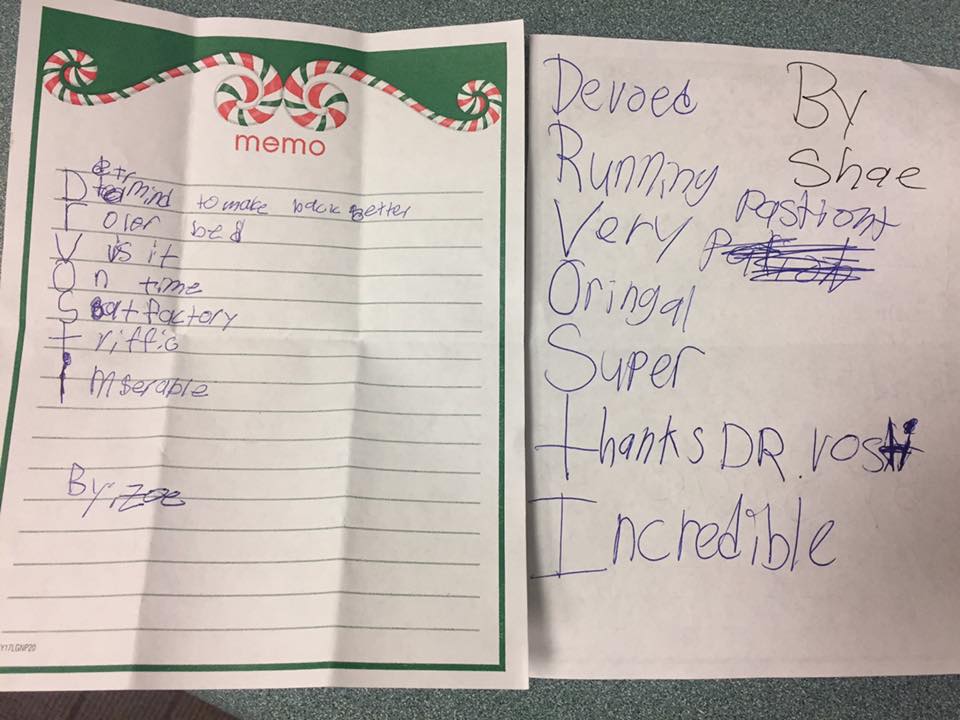 memo
Determind to make back better
roler bed
Visit
On time
Satfactory
triffic
imserable
By, Zoe
Y17LGNP20
Devoed
Running
Very Pastiont
Oringal
Super
thanks DR. vosti
Incredible
By
Shae